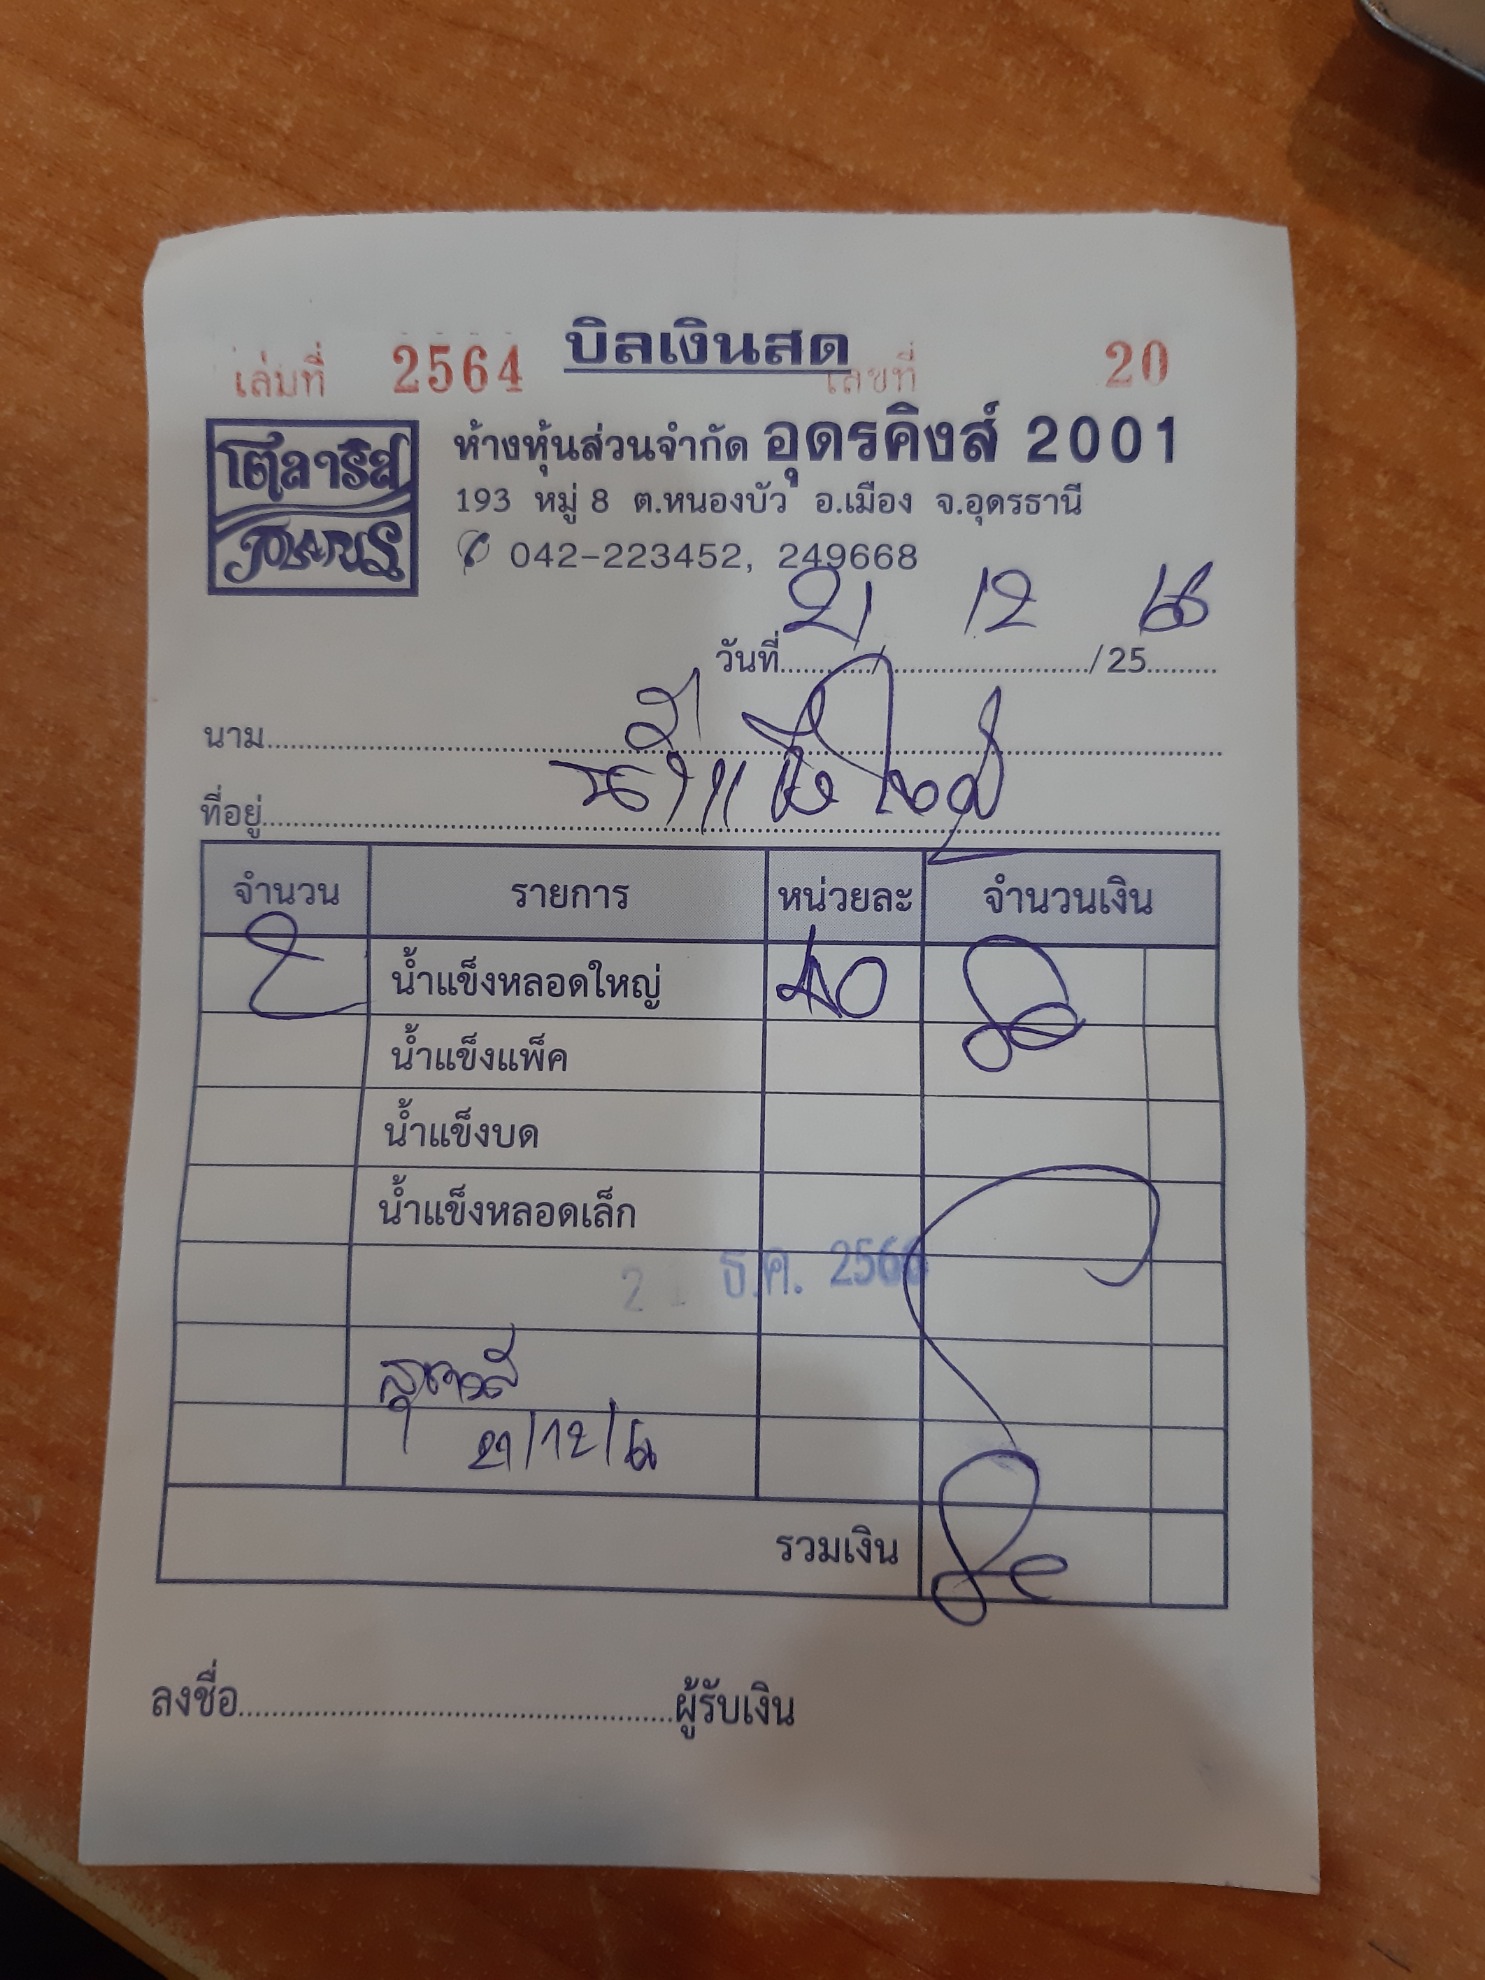 บิลเงินสด
เล่มที่ 2564 เลขที่ 20
ห้างหุ้นส่วนจำกัด อุดรคิงส์ 2001
193 หมู่ 8 ต.หนองบัว อ.เมือง จ.อุดรธานี
042-223452, 249668
วันที่ 21 / 12 / 25 66
นาม
ที่อยู่
จำนวน รายการ หน่วยละ จำนวนเงิน
2 น้ำแข็งหลอดใหญ่ 40 80
น้ำแข็งแพ็ค
น้ำแข็งบด
น้ำแข็งหลอดเล็ก
2 ธ.ค. 2566
21/12/66
รวมเงิน 80
ลงชื่อ ผู้รับเงิน